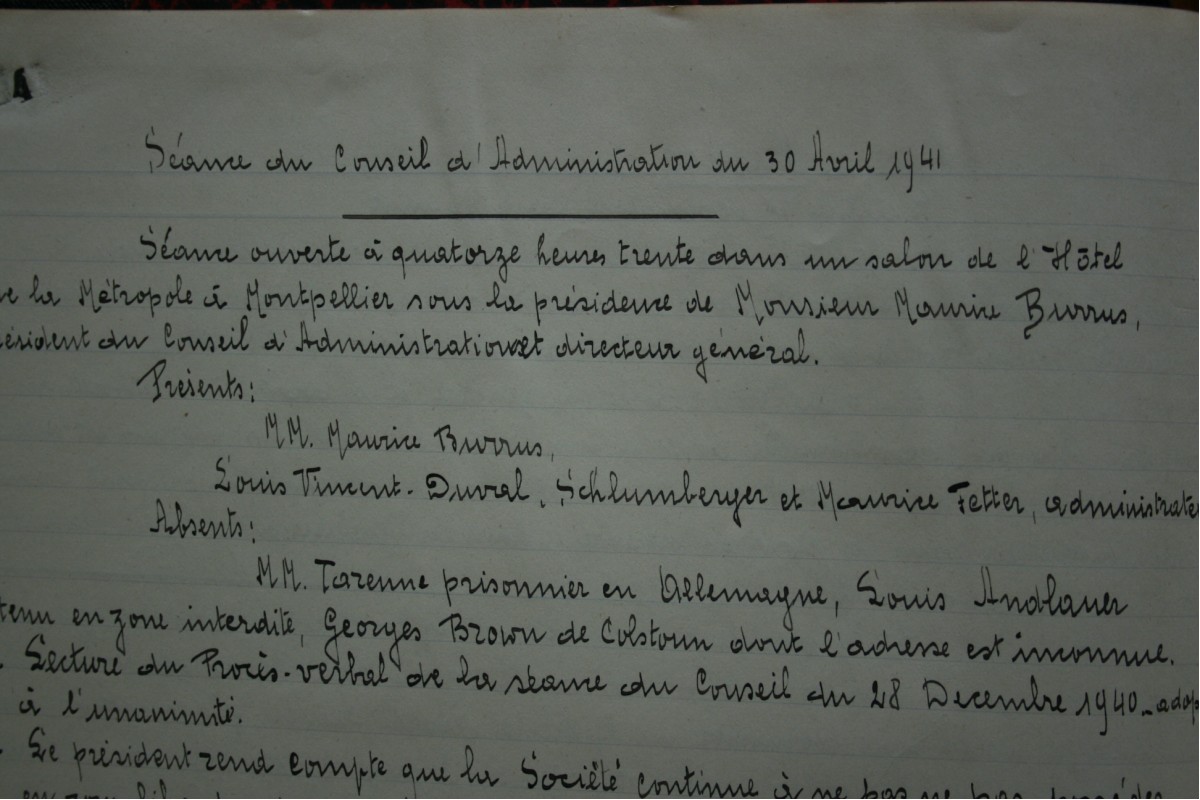 Séance du Conseil d'Administration du 30 Avril 1941
Séance ouverte à quatorze heures trente dans un salon de l'Hôtel
de la Métropole à Montpellier sous la présidence de Monsieur Maurice Burrus,
résident du Conseil d'Administration et directeur général.
Présents:
MM. Maurice Burrus,
Louis Vincent-Duval, Schlumberger et Maurice Fetter, administrate
Absents:
MM. Tarenne prisonnier en Allemagne, Louis Andlauer
tenu en zone interdite, Georges Brown de Colstoun dont l'adresse est inconnue.
Lecture du Procès-verbal de la séance du Conseil du 28 Decembre 1940 - adop
à l'unanimité.
Le président rend compte que la Société continue à ne pas ne pas